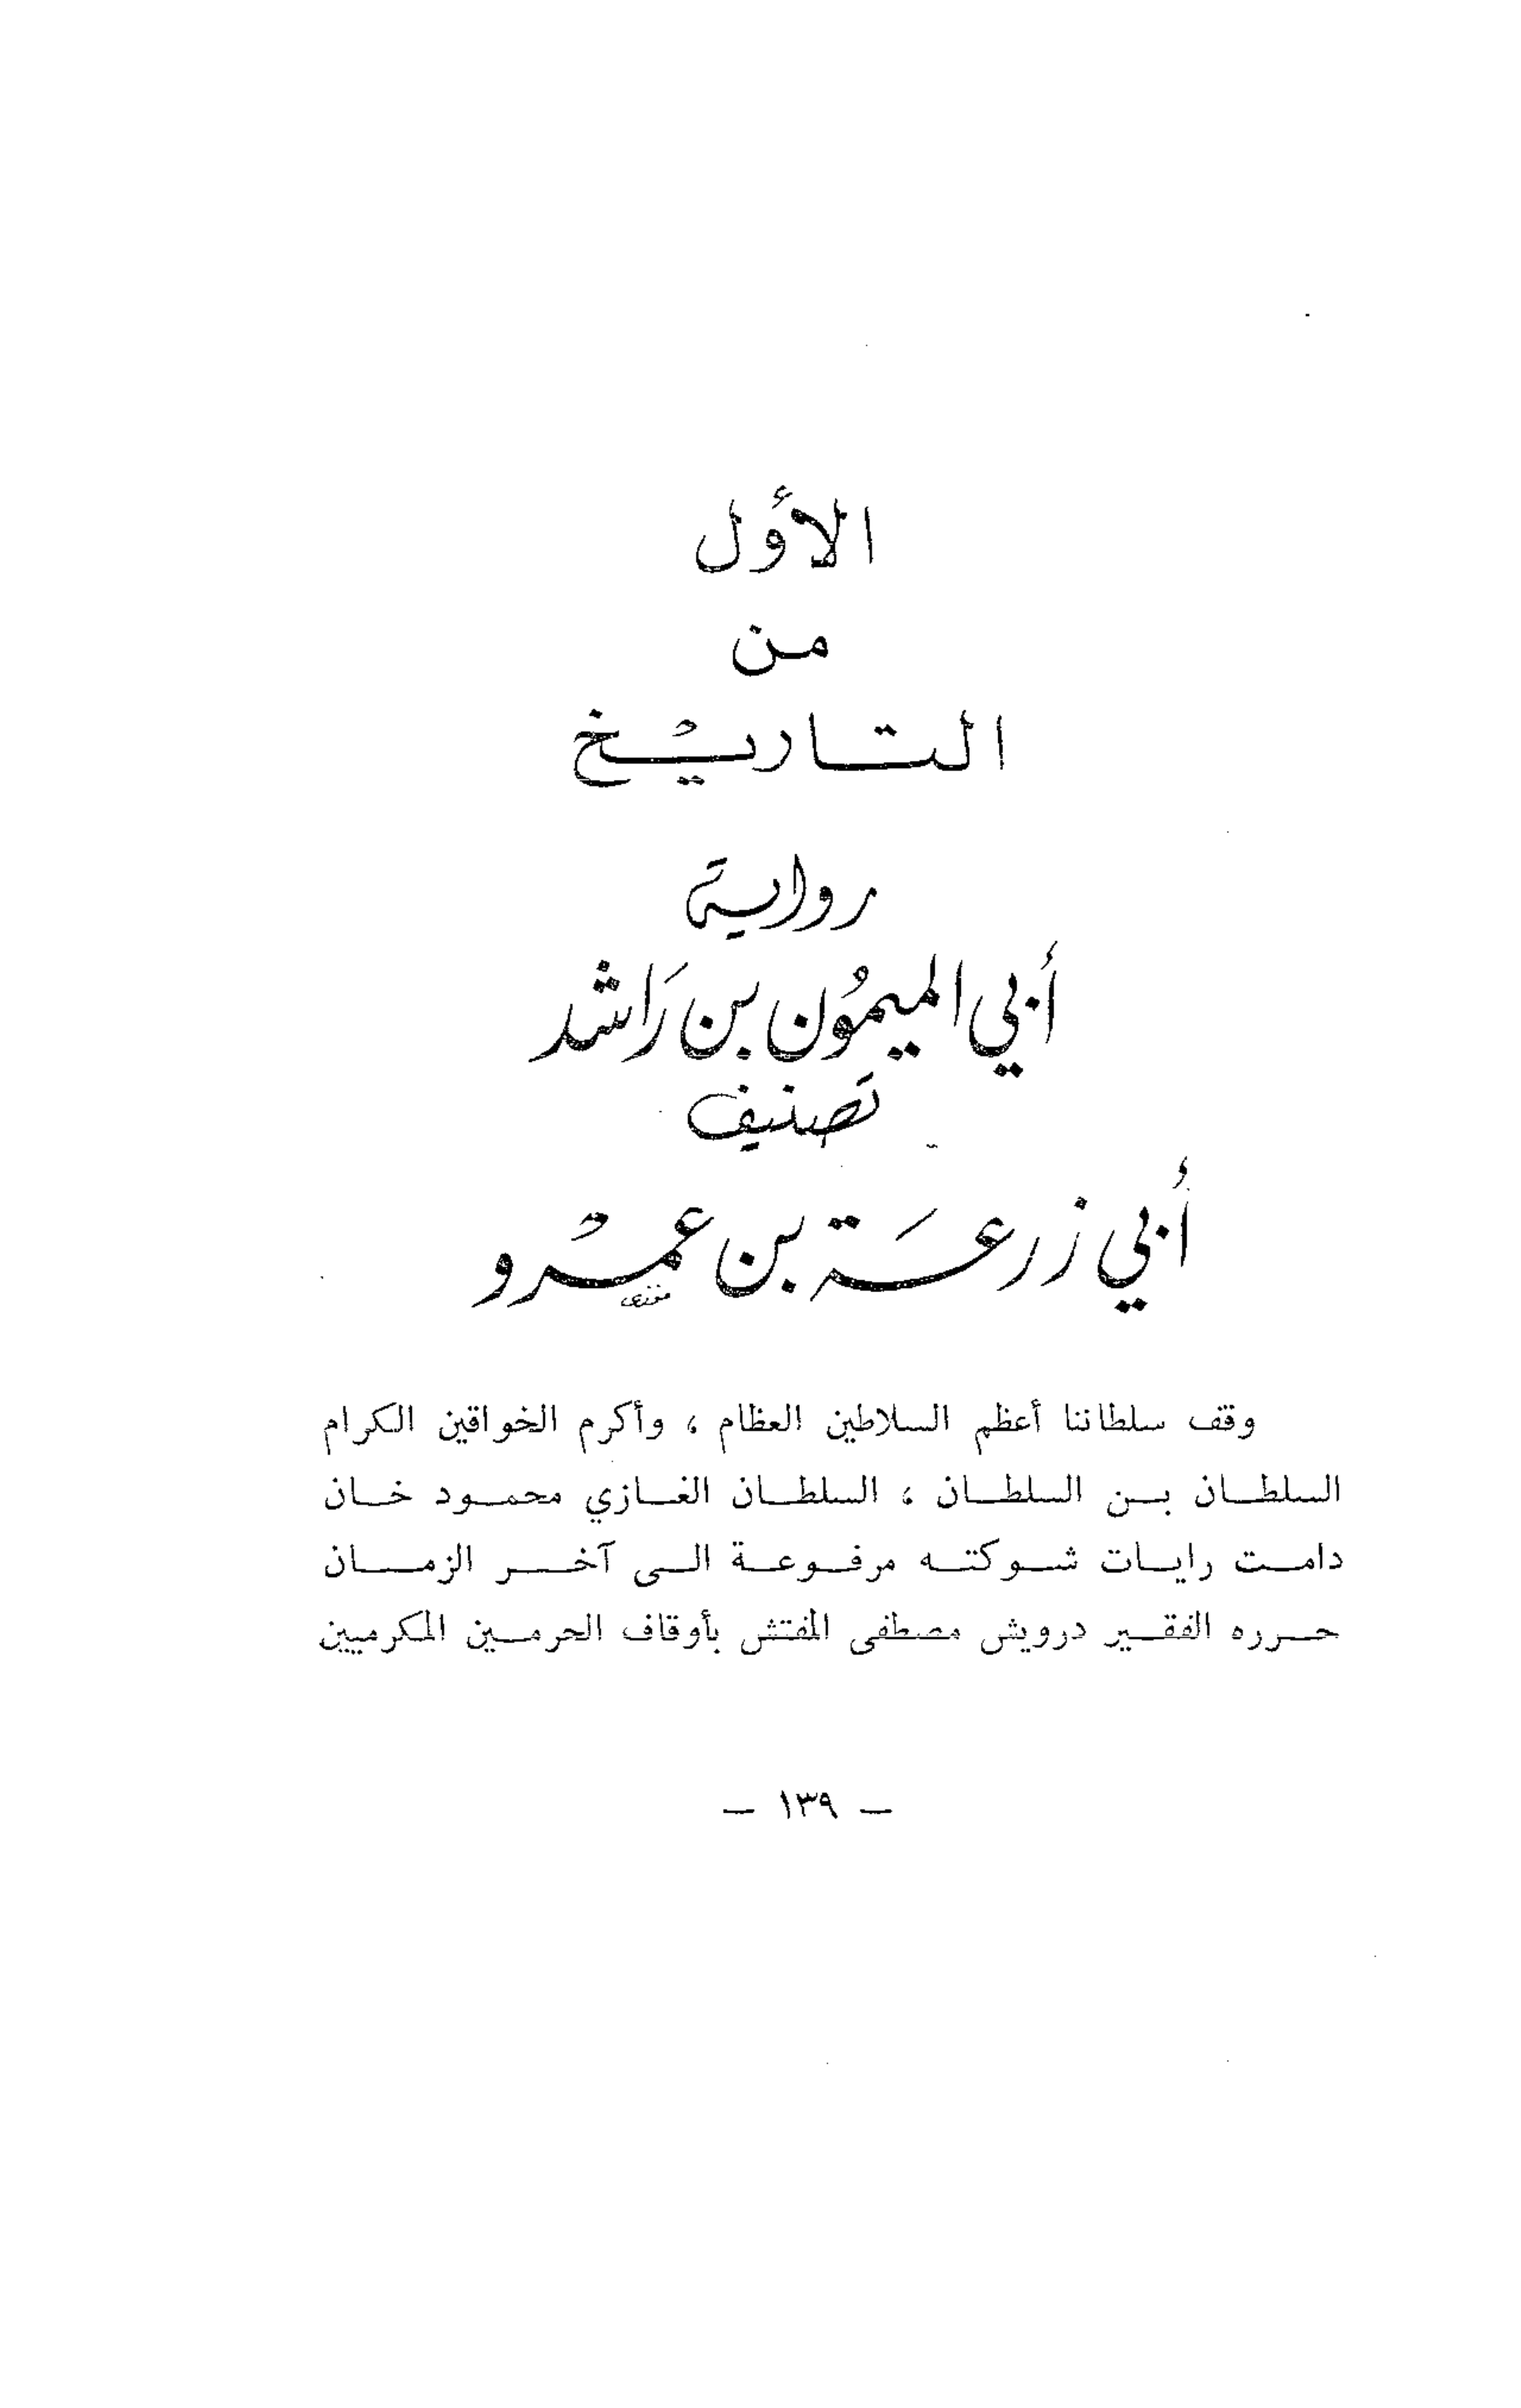 الأول
من
التاريخ
رواية
أبي الميمون بن راشد
تصنيف
أبي زرعة بن عمرو
وقف سلطاننا أعظم السلاطين العظام ، وأكرم الخواقين الكرام
السلطان بن السلطان ، السلطان الغازي محمود خان
دامت رايات شوكته مرفوعة الى آخر الزمان
حرره الفقير درويش مصطفى المفتش بأوقاف الحرمين المكرميين
— ١٣٩ —